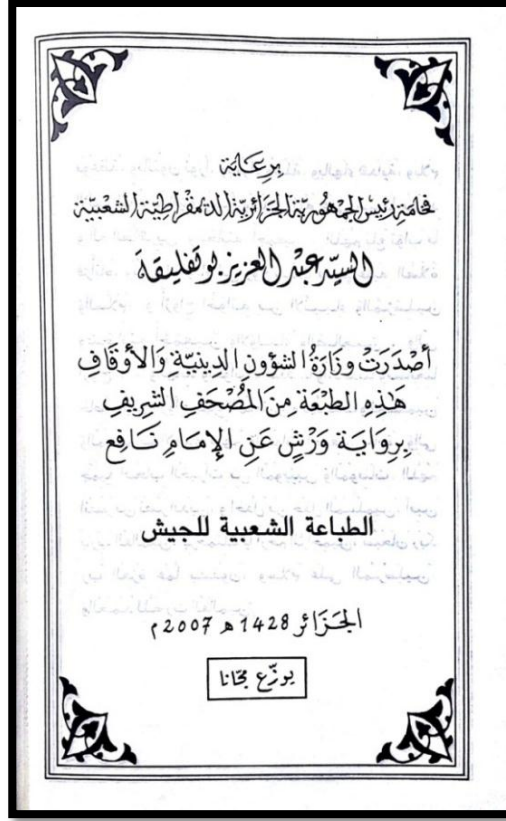 برعَايَة
فخامَة رَئيس الجمهُوريّة الجَزائريّة الديمقْراطيّة الشعْبيّة
السيّد عَبْد العَزيز بُوتفليقة
أَصْدَرَتْ وِزَارَةُ الشؤون الدِينيّةِ وَالأوقَافِ
هَذِهِ الطبْعَة مِنَ المُصْحَفِ الشريفِ
بِروَايَة وَرْشٍ عَنِ الإمَامِ نَافِع
الطباعة الشعبية للجيش
الجَزَائر 1428 ه 2007 م
يوزّع مجّانا